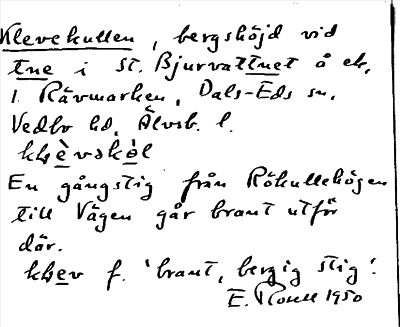 Klevekullen, bergshöjd vid
tne i St. Bjurvattnet å ek.
1 Rävmarken, Dals-Eds sn.
Vedbo hd. Älvsb. l.
En gångstig från Rökullehögen
till Vägen går brant utför
där.
f. 'brant, bergig stig'.
1950